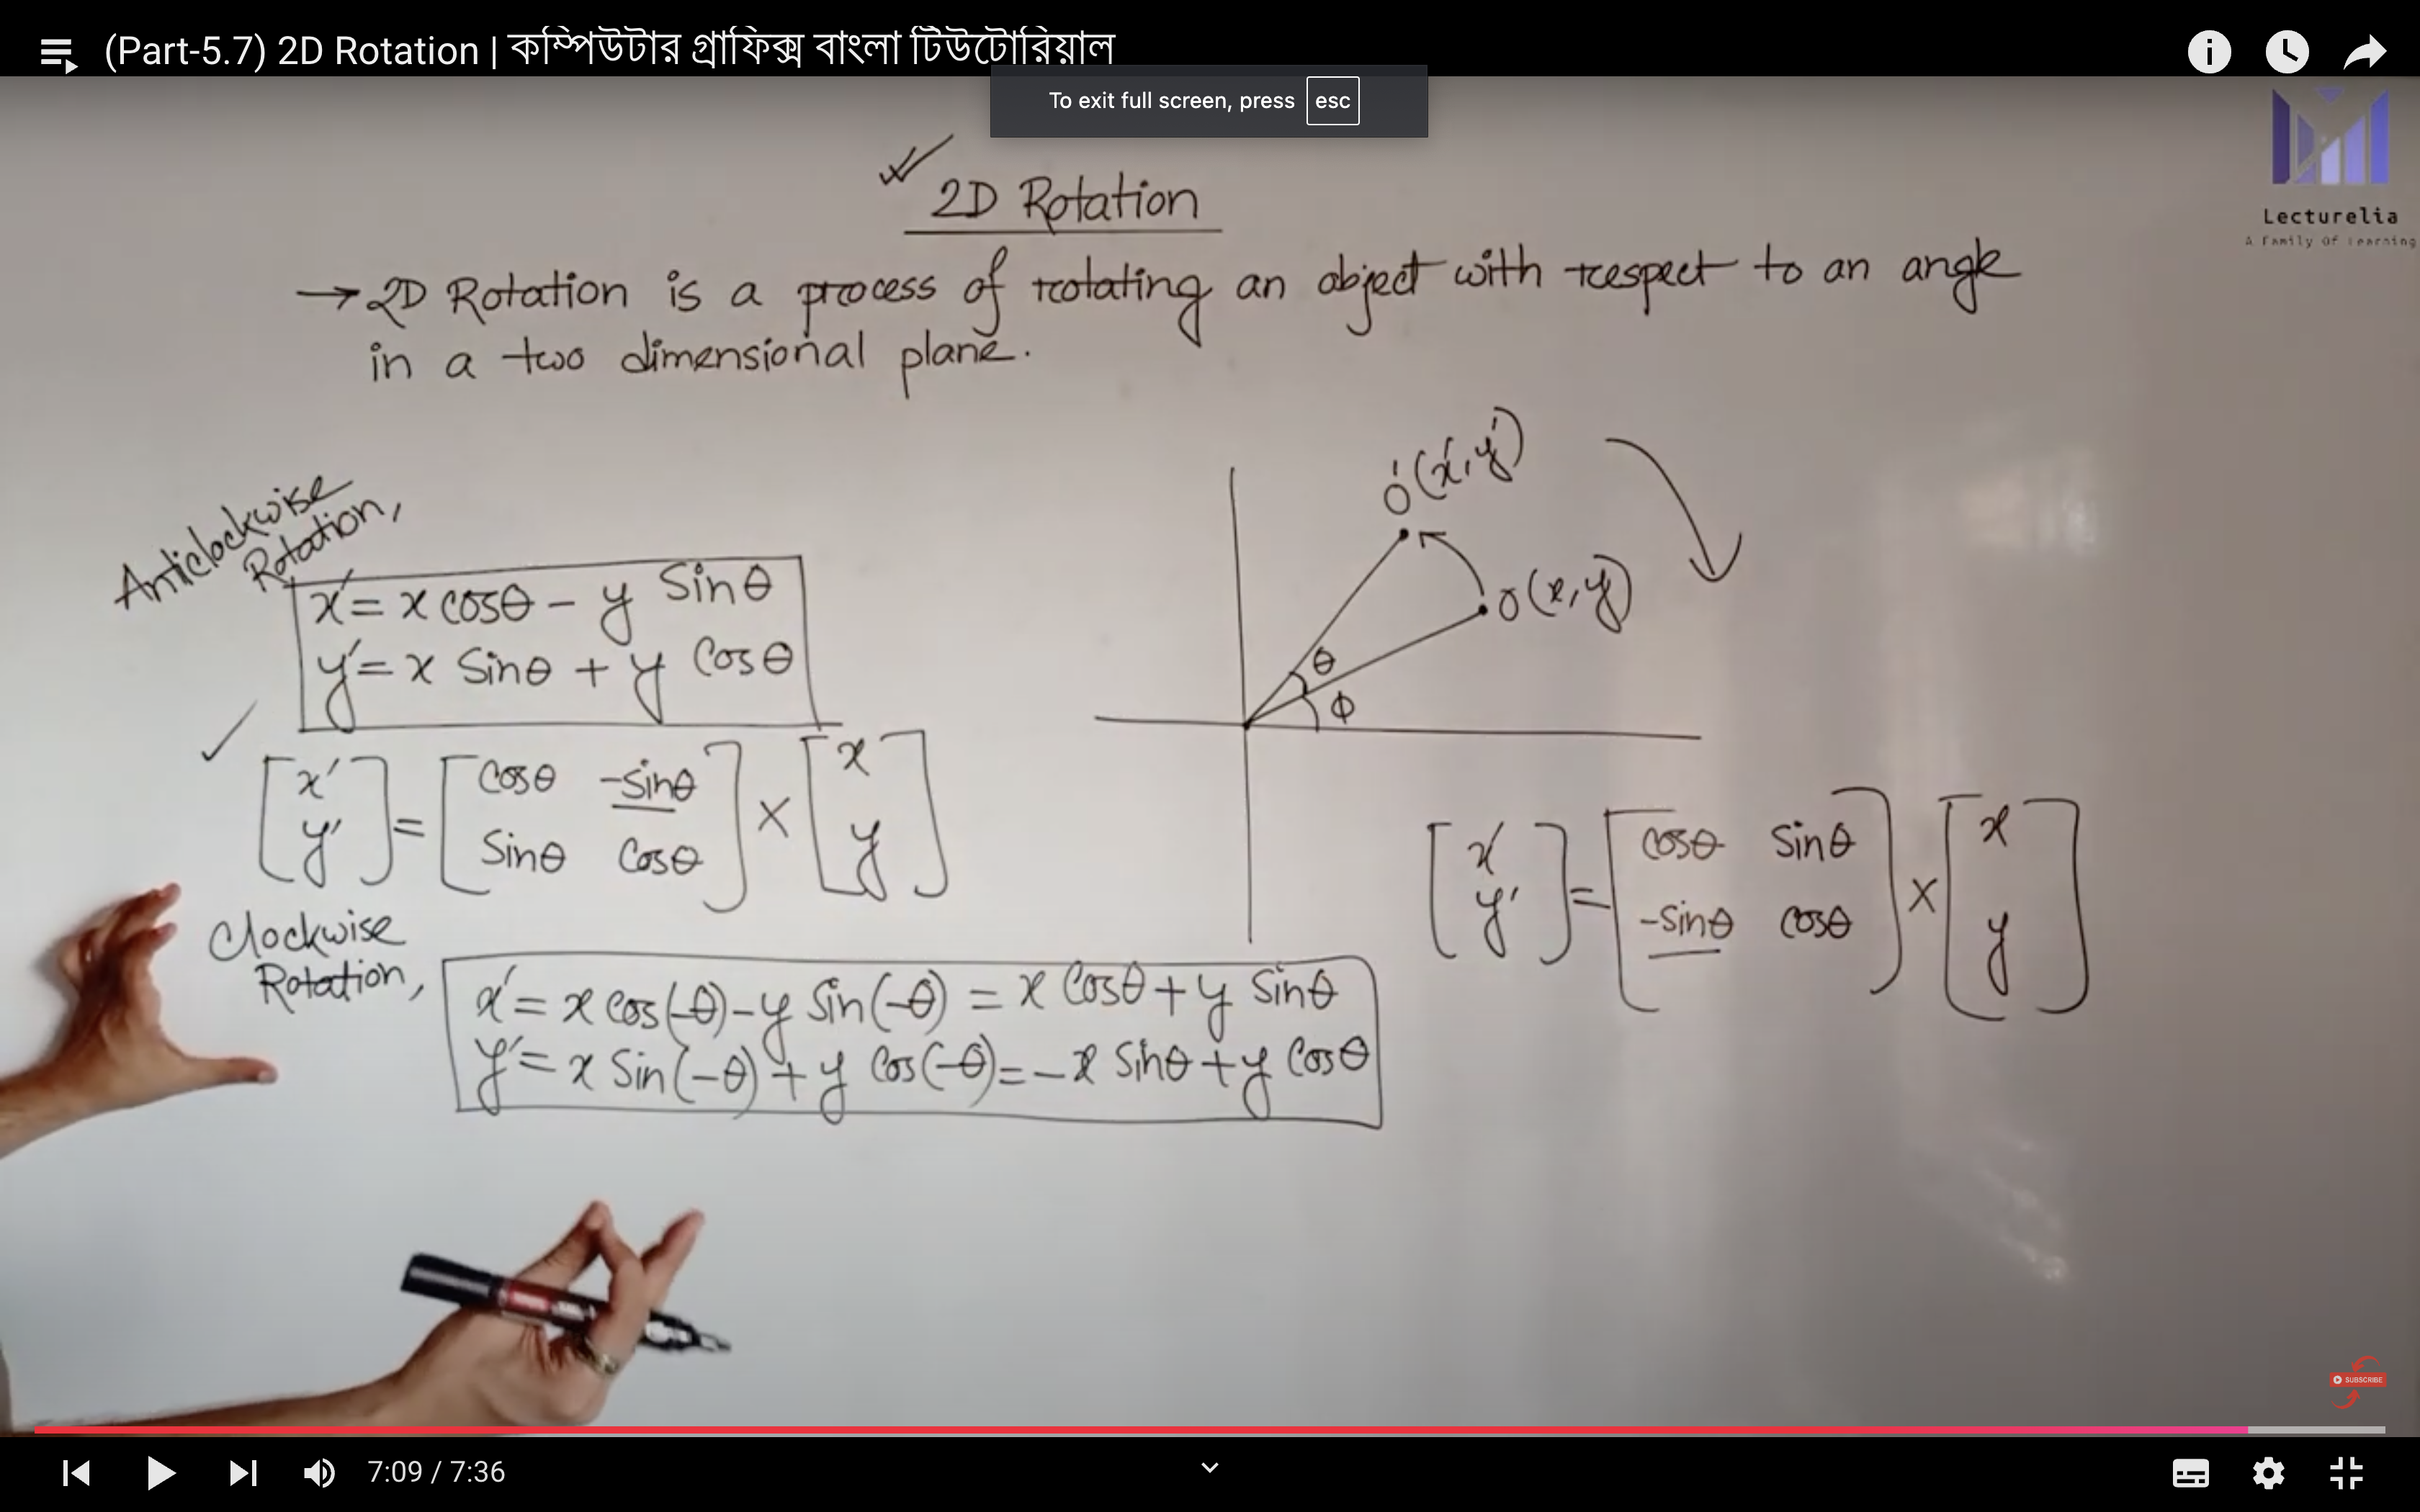 (Part-5.7) 2D Rotation | কম্পিউটার গ্রাফিক্স বাংলা টিউটোরিয়াল
To exit full screen, press esc
Lecturelia
A Family Of Learning
2D Rotation
→ 2D Rotation is a process of rotating an object with respect to an angle
in a two dimensional plane.
Anticlockwise
Rotation,
x' = x cosθ - y Sinθ
y' = x Sinθ + y Cosθ
[x' y'] = [Cosθ -Sinθ Sinθ Cosθ] × [x y]
O'(x', y')
O(x, y)
θ
Φ
[x' y'] = [cosθ Sinθ -Sinθ cosθ] × [x y]
Clockwise
Rotation,
x' = x Cos(-θ) - y Sin(-θ) = x Cosθ + y Sinθ
y' = x Sin(-θ) + y Cos(-θ) = -x Sinθ + y Cosθ
SUBSCRIBE
7:09 / 7:36